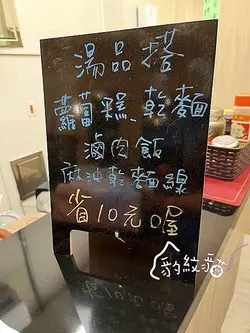 湯品搭
蘿蔔糕、乾麵
滷肉飯
麻油乾麵線
省10元喔
豹紋貓